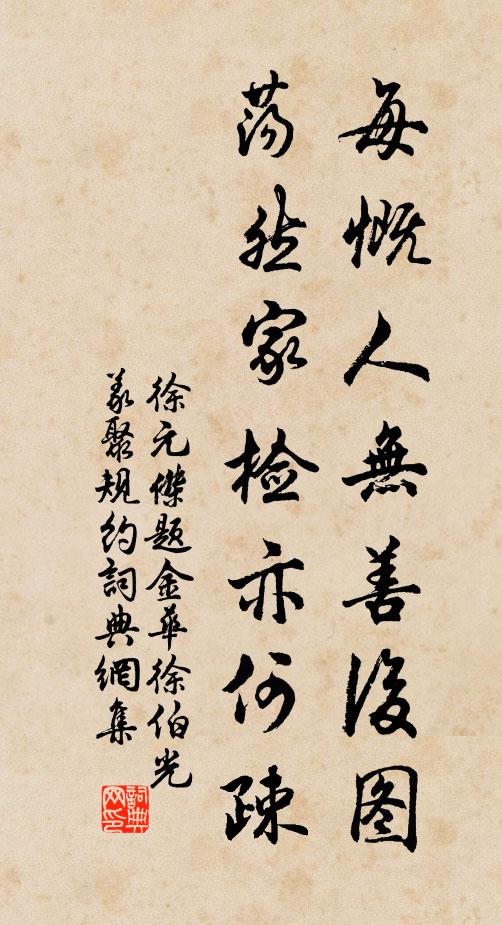 每慨人無善後图
荡然家檢亦何疎
徐元傑題金華徐伯光
義聚规約詞典網集
詞典网印